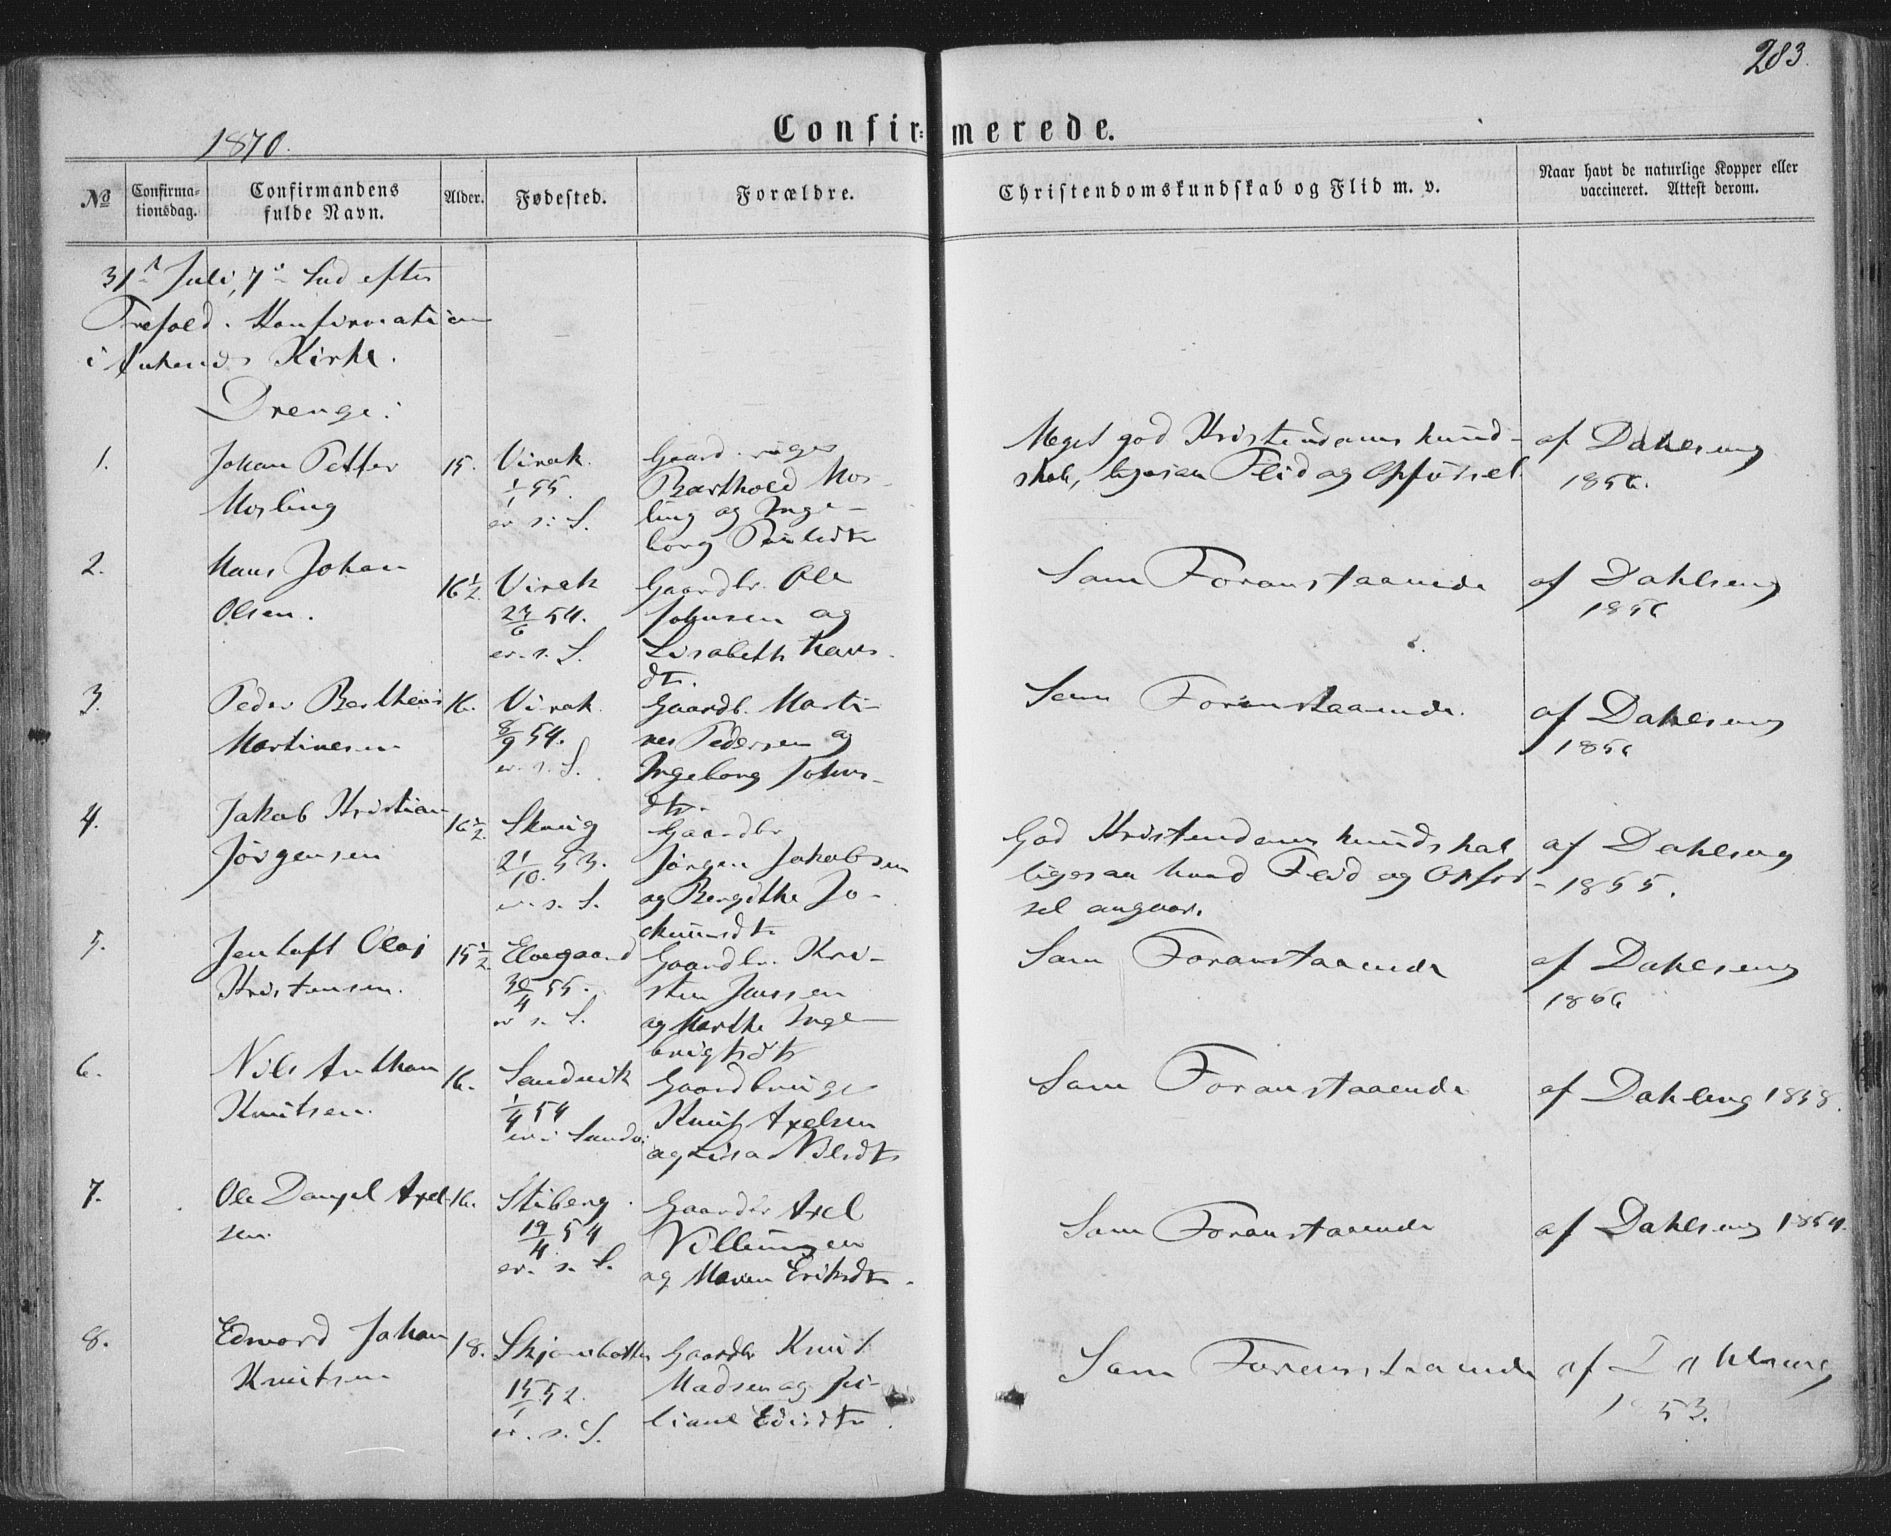 283.
1870.
Confir- merede.
№
Confirma-
tionsdag.
Confirmandens
fulde Navn.
Alder.
Fødested.
Forældre.
Christendomskundskab og Flid m. v.
Naar havt de naturlige Kopper eller
vaccineret. Attest derom.
31te Juli, 7de Snd efter
Trefold. Konfirmation
i Ankenes Kirke.
Drenge:
1.
Johan Petter
Mosling
15.
Virak.
1/1 55.
er s. S.
Gaardbruger
Barthold Mos-
ling og Inge-
borg Paulsdtr
Meget god Kristendomskund-
skab, ligesaa Flid og Opførsel
af Dahlseng
1856.
2.
Hans Johan
Olsen.
16 1/2.
Virak
27/6 54.
er. s. S.
Gaardbr. Ole
Johnsen og
Lisabeth Hans-
dtr.
Som Foranstaaende
af Dahlseng
1856
3.
Peder Bertheus
Martinesen
16.
Virak
8/9 54.
er. s. S.
Gaardb. Marti-
nes Pedersen og
Ingeborg Johns-
dtr.
Som Foranstaaende.
af Dahlseng
1856
4.
Jakob Kristian
Jørgensen
16 1/2.
Skavig
21/10 53.
er. s. S.
Gaardbr
Jørgen Jakobsen
og Bergithe Jo-
akumsdtr
God Kristendomskundskab
ligesaa hvad Flid og Opfør-
sel angaar.
af Dahlseng
1855.
5.
Jentoft Olai
Kristensen.
15 1/2
Elvegaard
30/4 55.
er s. S.
Gaardbr. Kri-
sten Jenssen
og Marthe Inge-
brigtsdtr
Som Foranstaaende
af Dahlseng
1856
6.
Nils Anthon
Knutsen.
16.
Sandvik
1/4 54
er i Sandv.
Gaardbruger
Knut Axelsen
og Lisa Nilsdtr
Som Foranstaaende
af Dahlseng 1858.
7.
Ole Danjel Axel-
sen.
16.
Stiberg
19/4 54
er. s. S.
Gaardbr Axel
Villumsen
og Maren Eriksdtr.
Som Foranstaaende
af Dahlseng 1854.
8.
Edvard Johan
Knutsen
18.
Skjombotten
15/1 52.
er. s. S.
Gaardbr Knut
Madsen og Ju-
liane Edisdtr.
Som Foranstaaende
af Dahlseng
1853.